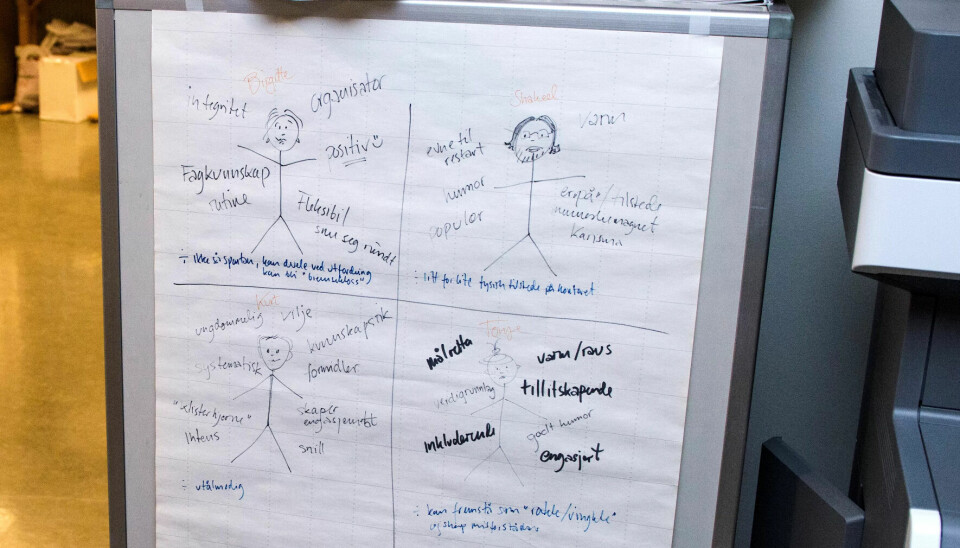 Birgitte
integritet
organisator
positiv
Fagkunnskap
rutine
Fleksibil
som seg rundt
÷ ikke så spontan, kan dvele ved utfordring
kan bli "bremsekloss"
Shakeel
varm
evne til
restart
humor
populær
"er på" / tilstede
menneskemagnet
Karisma
÷ litt for lite fysisk tilstede på kontoret
Kurt
ungdommelig
vilje
kunnskapsrik
systematisk
formidler
skaper
engasjement
intens
snill
÷ utålmodig
Tongje
målretta
varm/raus
verdigrunnlag
tillitskapende
inkluderende
godt humor
engasjert
÷ kan fremstå som
og skape